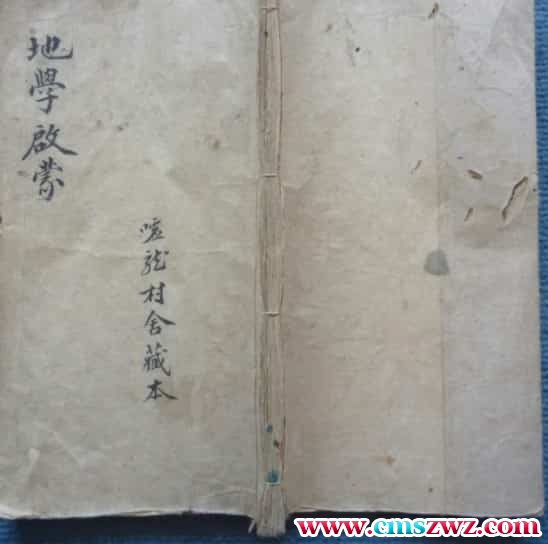 地學啟蒙
龍村舍藏本
www.cmszwz.com